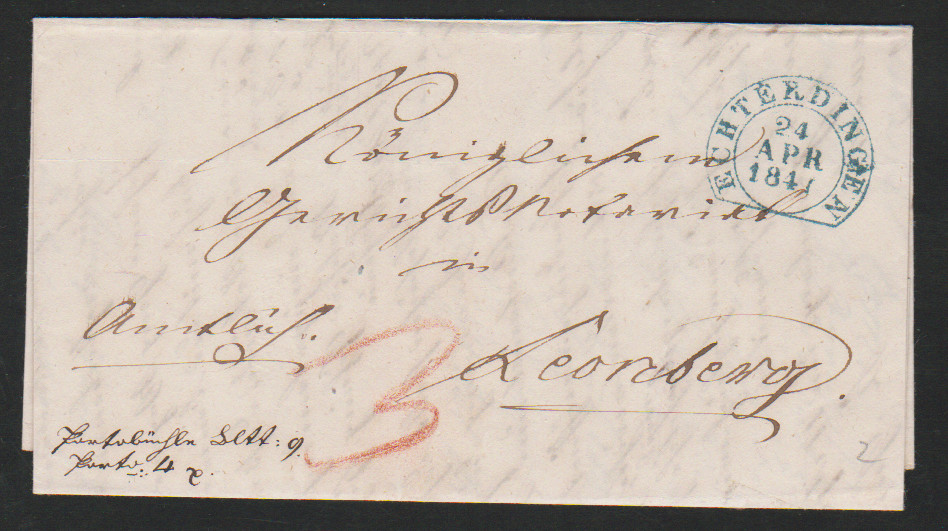 ECHTERDINGEN
24
APR
184
Königlichem
Gerichtsnotariat
in
Amtlich.
3
Leonberg.
Portobüchle Bltt: 9.
Porto: 4 x.
2